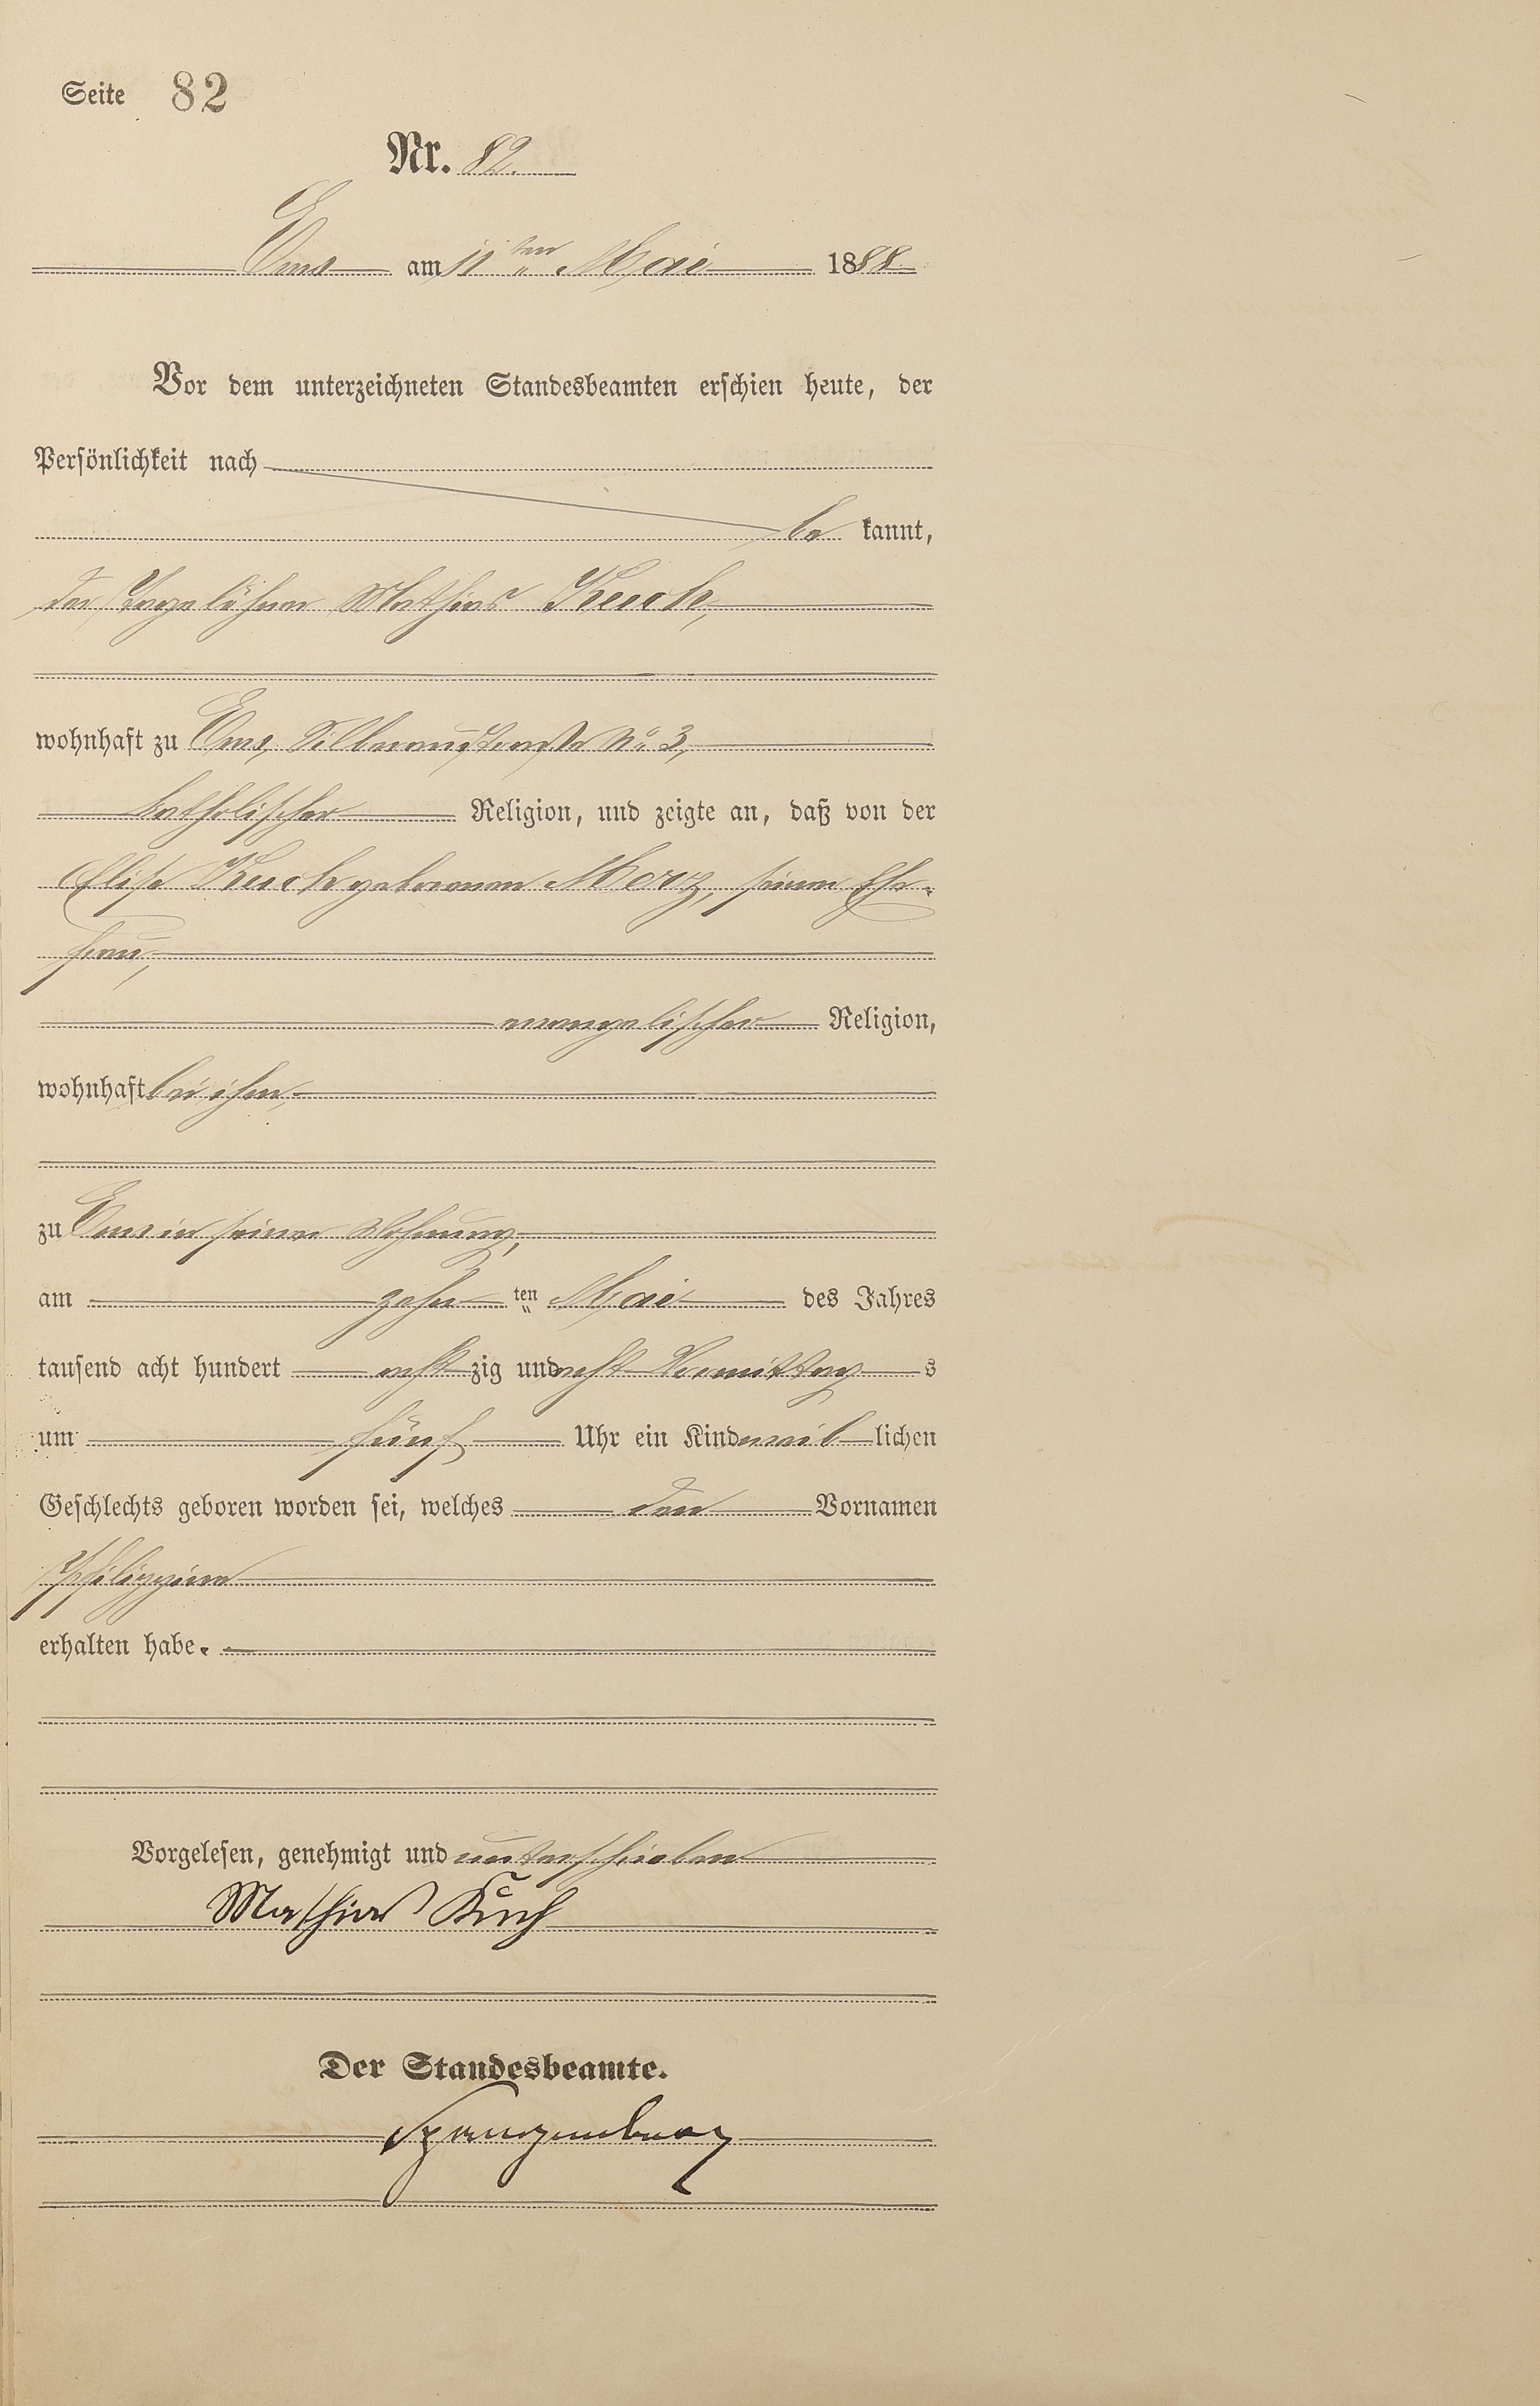 Seite 82
Nr. 82.
Ems am 11ten Mai 1888
Vor dem unterzeichneten Standesbeamten erschien heute, der
Persönlichkeit nach
be kannt,
der Tagelöhner Mathias Kuch,
wohnhaft zu Ems, Silberaustraße No 3,
katholischer Religion, und zeigte an, daß von der
Elise Kuch geborenen Merz, seiner Ehe-
frau,
evangelischer Religion,
wohnhaft bei ihm,
zu Ems in seiner Wohnung,
am zehn ten Mai des Jahres
tausend acht hundert acht zig und acht Vormittag s
um fünf Uhr ein Kind weib lichen
Geschlechts geboren worden sei, welches den Vornamen
Philippine
erhalten habe.
Vorgelesen, genehmigt und unterschrieben
Mathias Kuch
Der Standesbeamte.
Spangenberg